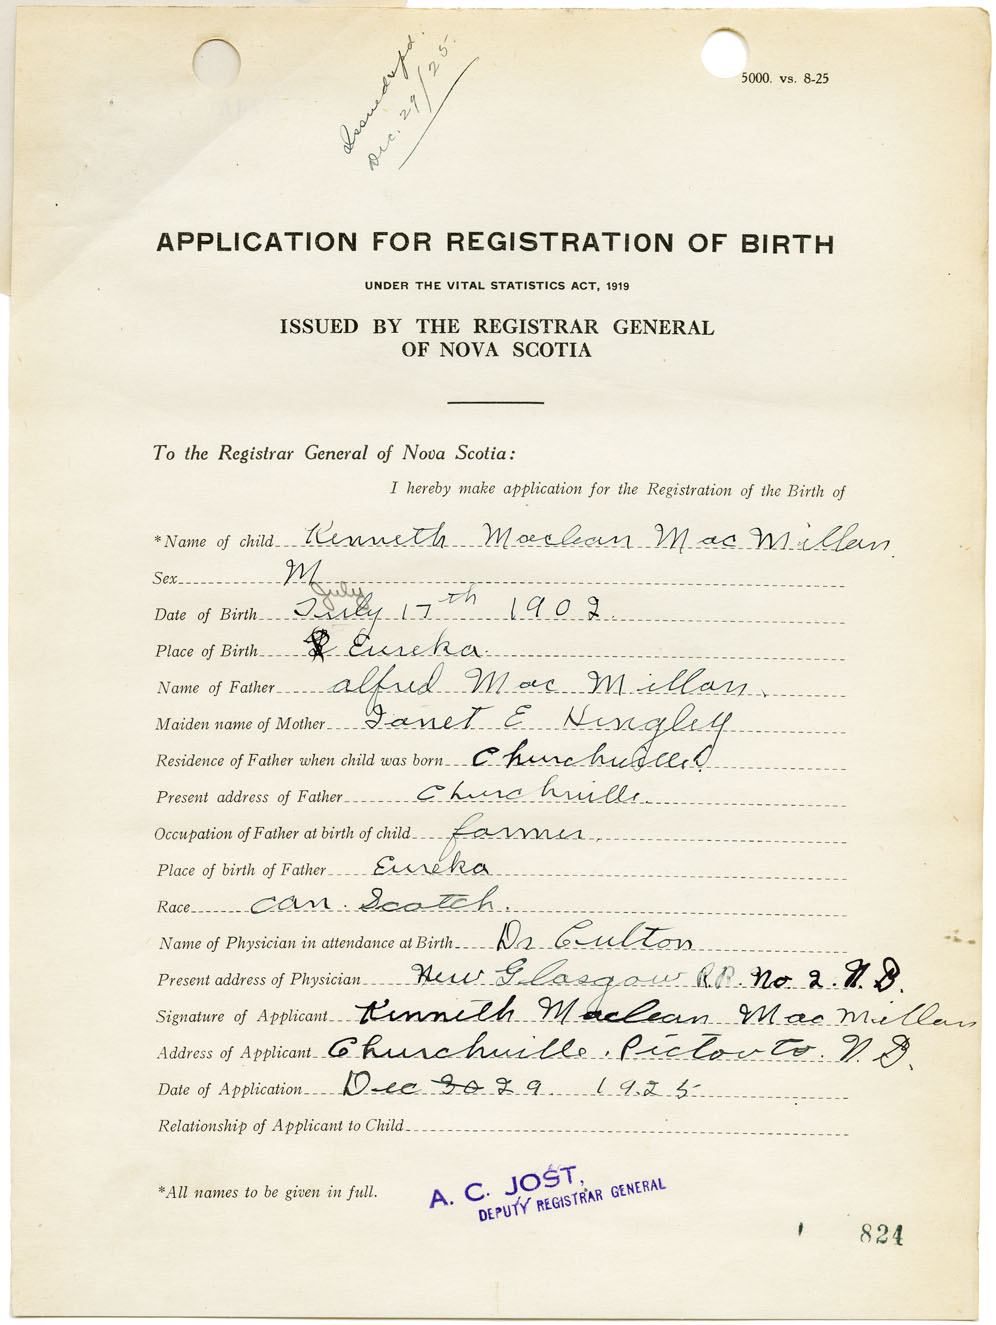 Issued & pd.
Dec. 29/25.
5000. vs. 8-25
APPLICATION FOR REGISTRATION OF BIRTH
UNDER THE VITAL STATISTICS ACT, 1919
ISSUED BY THE REGISTRAR GENERAL
OF NOVA SCOTIA
To the Registrar General of Nova Scotia:
I hereby make application for the Registration of the Birth of
*Name of child Kenneth Maclean Mac Millan
Sex M
July
Date of Birth July 17th 1902.
Place of Birth Eureka.
Name of Father alfred Mac Millan.
Maiden name of Mother Janet E Hingley
Residence of Father when child was born Churchville
Present address of Father Churchville.
Occupation of Father at birth of child farmer,
Place of birth of Father Eureka
Race can. Scotch.
Name of Physician in attendance at Birth Dr Culton
Present address of Physician New Glasgow R.R. No. 2. N.S.
Signature of Applicant Kenneth Maclean Mac Millan
Address of Applicant Churchville. Pictou Co. N.S.
Date of Application Dec 30 29. 1925
Relationship of Applicant to Child
*All names to be given in full.
A. C. JOST,
DEPUTY REGISTRAR GENERAL
824